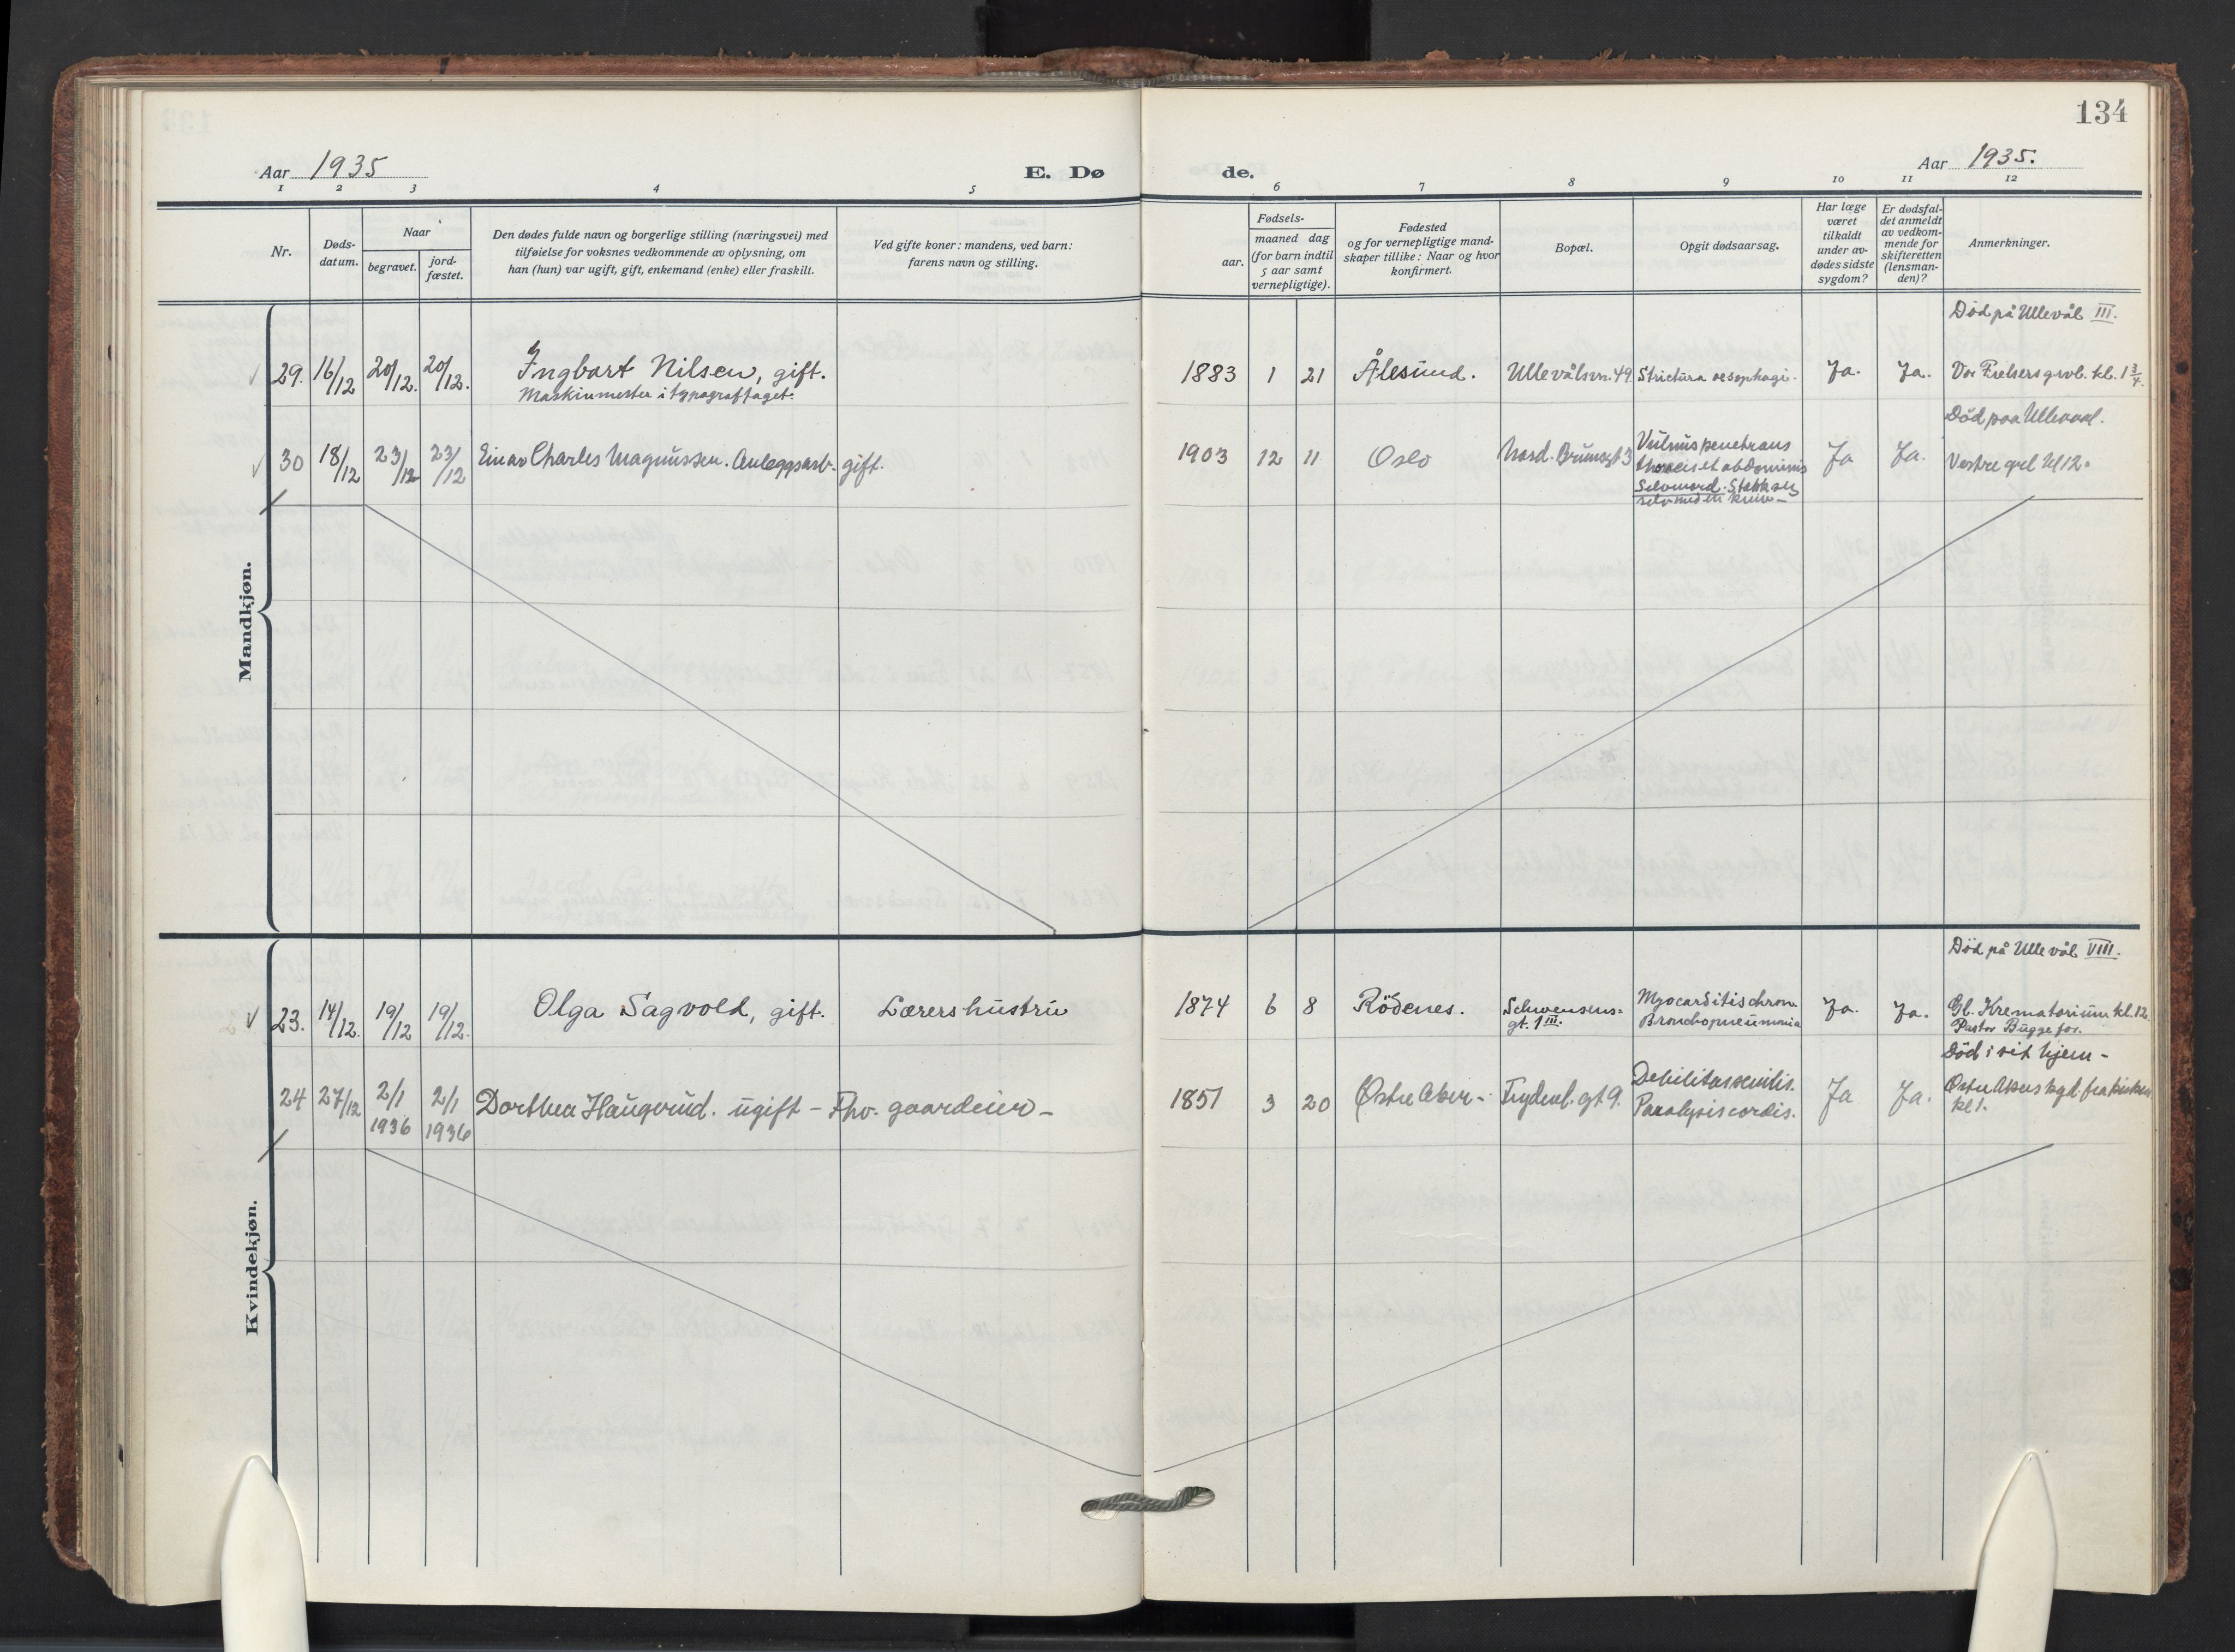 134
Aar 1935
E. Dø
de.
Aar 1935.
1 2 3 4 5 6 7 8 9 10 11 12
Nr.
Døds-
datum.
Naar
begravet.
jord-
fæstet.
Den dødes fulde navn og borgerlige stilling (næringsvei) med
tilføielse for voksnes vedkommende av oplysning, om
han (hun) var ugift, gift, enkemand (enke) eller fraskilt.
Ved gifte koner: mandens, ved barn:
farens navn og stilling.
Fødsels-
aar.
maaned dag
(for barn indtil
5 aar samt
vernepligtige).
Fødested
og for vernepligtige mand-
skaper tillike: Naar og hvor
konfirmert.
Bopæl.
Opgit dødsaarsag.
Har læge
været
tilkaldt
under av-
dødes sidste
sygdom?
Er dødsfal-
det anmeldt
av vedkom-
mende for
skifteretten
(lensman-
den)?
Anmerkninger.
Mandkjøn.
Død på Ullevål III.
29. 16/12 20/12. 20/12. Ingbart Nilsen, gift. 1883 1 21 Ålesund. Ullevålsvn. 49. Strictura oesophagi. Ja. Ja. Vor Frelsers grvl. kl. 1 3/4.
Maskinmester i typograffaget.
Død paa Ullevaal.
30 18/12 23/12 23/12 Einar Charles Magnussen. Anleggsarb. gift. 1903 12 11 Oslo Nord. Brunsgt 3 Vulnus penetrans Ja Ja. Vestre grl kl 12.
thoracis et abdominis
Selvmord. Stakk seg
selv med en kniv
Kvindekjøn.
Død på Ullevål VIII.
23. 14/12. 19/12 19/12. Olga Sagvold, gift. Lærers hustru 1874 6 8 Rödenes. Schwensens= Myocarditis chron. Ja. Ja. Gl. Krematorium kl. 12.
gt. 1 III. Bronchopneumonia Pastor Bugge for.
Død i sit hjem -
24 27/12 2/1 1936 2/1 1936 Dorthea Haugerud. ugift - Fhv. gaardeier - 1851 3 20 Østre Aker - Frydenl. gt 9. Debilitas senilis. Ja Ja. Østre Akers kgd. fra kirken
Paralysis cordis. kl 1.